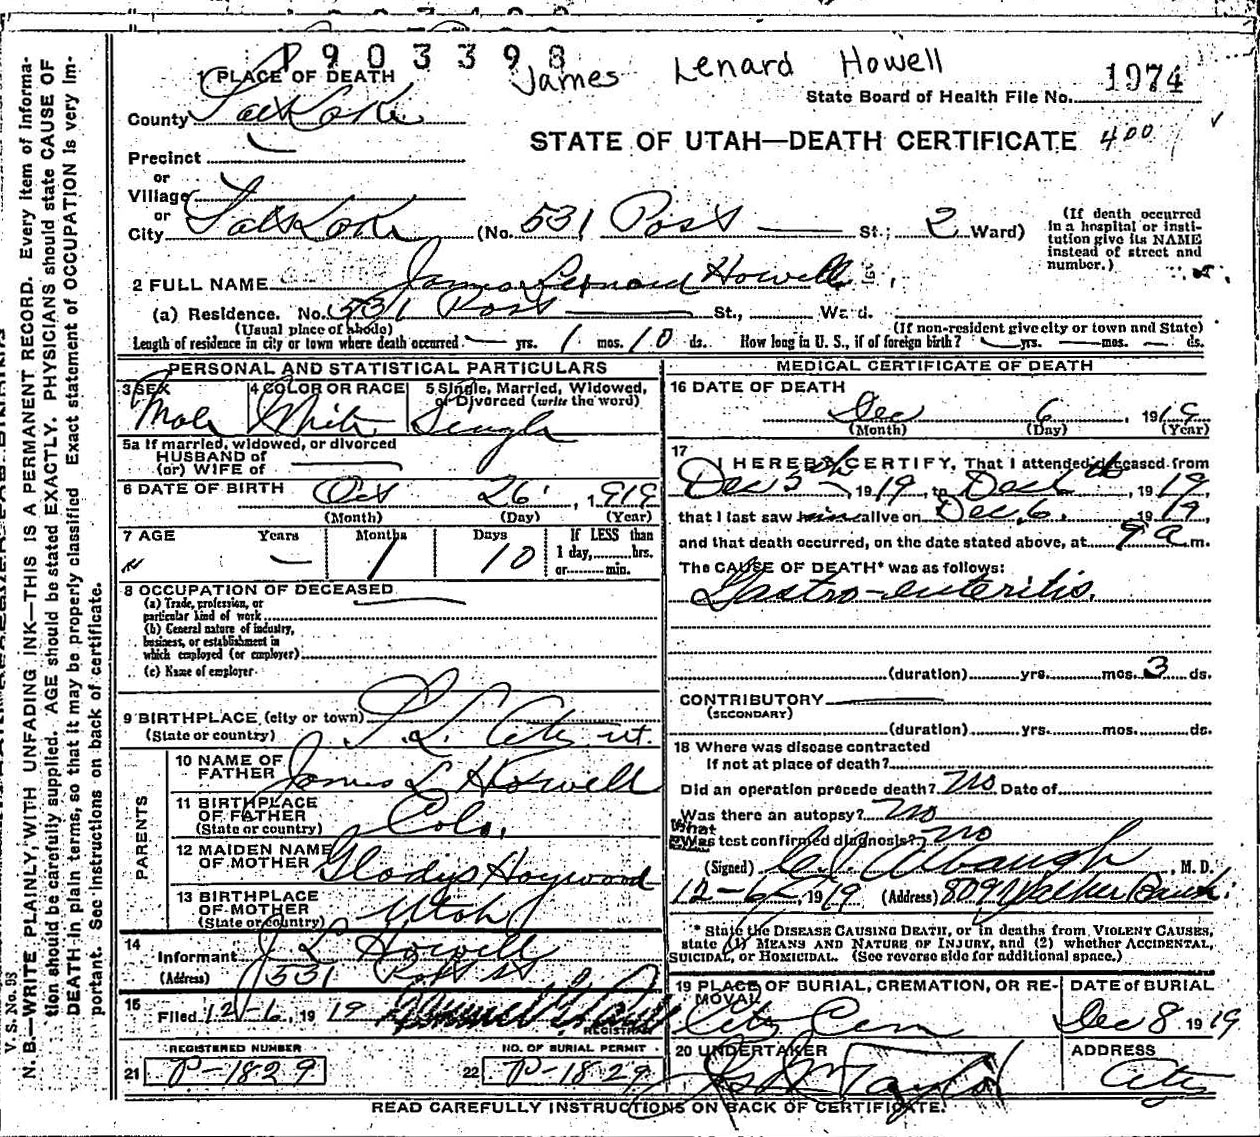 P903398
James Lenard Howell
1 PLACE OF DEATH
State Board of Health File No. 1974
County Salt Lake
STATE OF UTAH—DEATH CERTIFICATE 400
Precinct
or
Village
or
City Salt Lake (No. 531 Post St.; 2 Ward)
(If death occurred in a hospital or institution give its NAME instead of street and number.)
2 FULL NAME James Leonard Howell
(a) Residence. No. 531 Post St., Ward.
(Usual place of abode) (If non-resident give city or town and State)
Length of residence in city or town where death occurred — yrs. 1 mos. 10 ds. How long in U. S., if of foreign birth? — yrs. — mos. — ds.
PERSONAL AND STATISTICAL PARTICULARS
3 SEX Male
4 COLOR OR RACE White
5 Single, Married, Widowed, or Divorced (write the word) Single
5a If married, widowed, or divorced
HUSBAND of
(or) WIFE of
6 DATE OF BIRTH Oct 26, 1919
(Month) (Day) (Year)
7 AGE Years — Months 1 Days 10
If LESS than
1 day, hrs.
or min.
8 OCCUPATION OF DECEASED
(a) Trade, profession, or
particular kind of work
(b) General nature of industry,
business, or establishment in
which employed (or employer)
(c) Name of employer
9 BIRTHPLACE (city or town) S. L. City ut.
(State or country)
PARENTS
10 NAME OF FATHER James L Howell
11 BIRTHPLACE OF FATHER Colo.
(State or country)
12 MAIDEN NAME OF MOTHER Gladys Haywood
13 BIRTHPLACE OF MOTHER Utah
(State or country)
14 Informant J L Howell
(Address) 531 Post st
15 Filed 12-6, 1919
REGISTRAR
REGISTERED NUMBER
21 P-1829
NO. OF BURIAL PERMIT
22 P-1829
MEDICAL CERTIFICATE OF DEATH
16 DATE OF DEATH
Dec 6, 1919
(Month) (Day) (Year)
17 I HEREBY CERTIFY, That I attended deceased from
Dec 5th 1919, to Dec 6th, 1919,
that I last saw him alive on Dec. 6. 1919,
and that death occurred, on the date stated above, at 9 a m.
The CAUSE OF DEATH* was as follows:
Gastro-enteritis.
(duration) yrs. mos. 3 ds.
CONTRIBUTORY
(SECONDARY)
(duration) yrs. mos. ds.
18 Where was disease contracted
If not at place of death?
Did an operation precede death? No Date of
Was there an autopsy? No
What test confirmed diagnosis? no
(Signed) Albaugh, M. D.
12-6-, 1919 (Address) 809 Walker Bank
* State the DISEASE CAUSING DEATH, or in deaths from VIOLENT CAUSES,
state (1) MEANS AND NATURE OF INJURY, and (2) whether ACCIDENTAL,
SUICIDAL, or HOMICIDAL. (See reverse side for additional space.)
19 PLACE OF BURIAL, CREMATION, OR REMOVAL
City Cem
DATE of BURIAL
Dec 8 1919
20 UNDERTAKER
Taylor
ADDRESS
City
READ CAREFULLY INSTRUCTIONS ON BACK OF CERTIFICATE.
V. S. No. 98
N. B.—WRITE PLAINLY, WITH UNFADING INK—THIS IS A PERMANENT RECORD. Every item of information should be carefully supplied. AGE should be stated EXACTLY. PHYSICIANS should state CAUSE OF DEATH in plain terms, so that it may be properly classified. Exact statement of OCCUPATION is very important. See instructions on back of certificate.